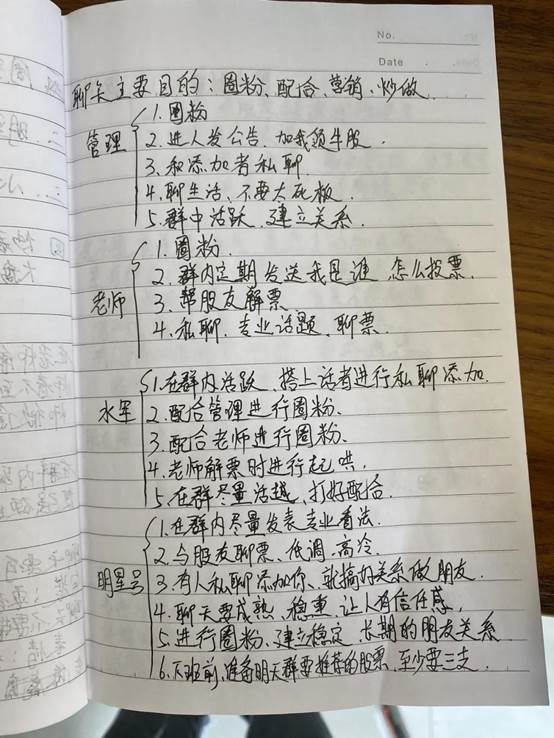 No.
Date
聊天主要目的：圈粉、配合、营销、炒做
管理
1.圈粉
2.进人发公告.加我领牛股.
3.和添加者私聊
4.聊生活、不要太死板.
5.群中活跃.建立关系.
老师
1.圈粉.
2.群内定期发送我是谁 怎么投票.
3.帮股友解票
4.私聊.专业话题.聊票.
水军
1.在群内活跃.搭上话者进行私聊添加.
2.配合管理进行圈粉、
3.配合老师进行圈粉.
4.老师解票时进行起哄.
5.在群尽量活越、打好配合.
明星号
1.在群内尽量发表专业看法.
2.与股友聊票、低调.高冷.
3.有人私聊添加你、就搞好关系做朋友.
4.聊天要成熟.稳重.让人有信任感.
5.进行圈粉.建立稳定 长期的朋友关系
6.下班前、准备明天群要推荐的股票 至少要三支.